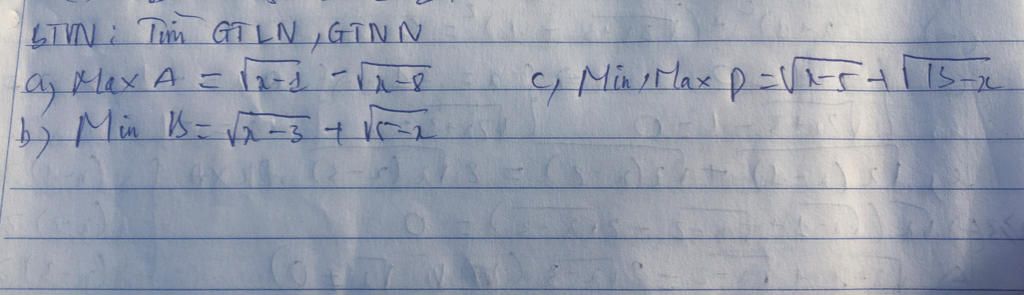 BTVN: Tìm GTLN, GTNN
a, Max A = √x-1 - √x-8 c, Min, Max D = √x-5 + √13-x
b) Min B = √x-3 + √5-x